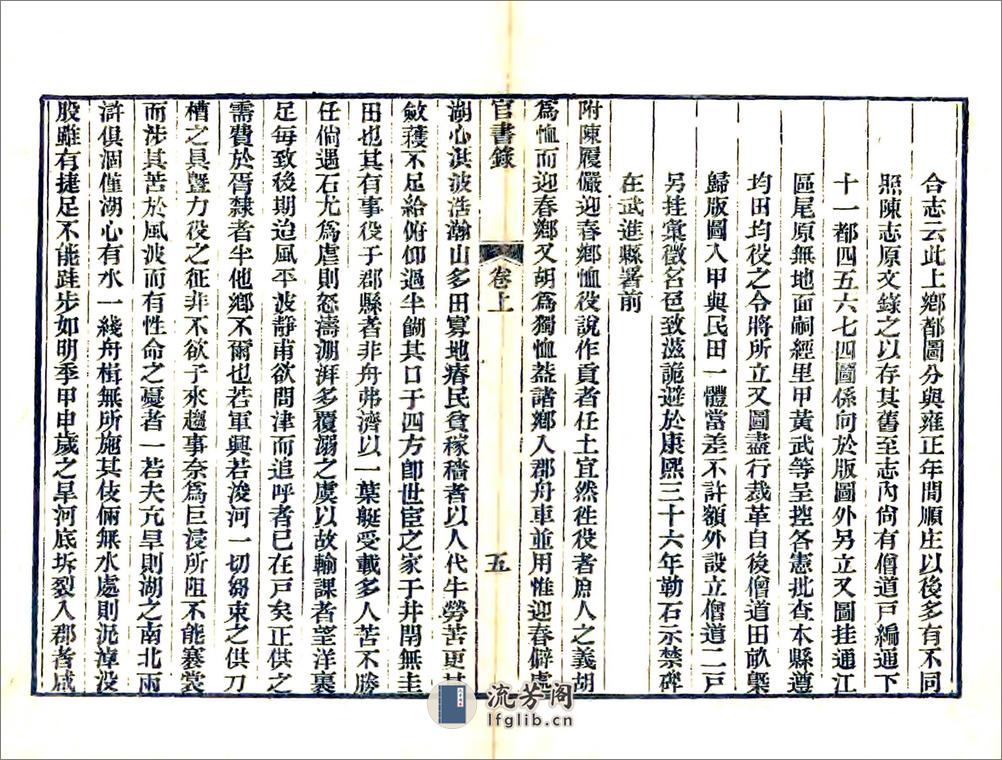 合志云此上鄉都圖分與雍正年閒順庄以後多有不同
照陳志原文錄之以存其舊至志內尙有僧道戸編通下
十一都四五六七四圖係向於版圖外另立又圖挂通江
區尾原無地面嗣經里甲黃武等呈控各憲批查本縣遵
均田均役之令將所立又圖盡行裁革自後僧道田畝槩
歸版圖入甲與民田一體當差不許額外設立僧道二戸
另挂彙徵名邑致滋詭避於康熙三十六年勒石示禁碑
在武進縣署前
附陳履儼迎春鄉恤役說作貢者任土宜然徃役者庶人之義胡
爲恤而迎春鄉又胡爲獨恤葢諸鄉入郡舟車並用惟迎春僻處
官書錄
卷上
五
湖心淇波浩瀚山多田寡地瘠民貧稼穡者以人代牛勞苦更甚
斂穫不足給俯仰過半餬其口于四方卽世宦之家于井閈無圭
田也其有事役于郡縣者非舟弗濟以一葉艇受載多人苦不勝
任倘遇石尤爲虐則怒濤溯湃多覆溺之虞以故輸課者望洋裹
足每致後期迨風平波靜甫欲問津而追呼者已在戸矣正供之
需費於胥隸者半他鄉不爾也若軍興若浚河一切芻束之供刀
槽之具曁力役之征非不欲子來趨事奈爲巨浸所阻不能褰裳
而涉其苦於風波而有性命之憂者一若夫亢旱則湖之南北兩
滸俱涸僅湖心有水一綫舟楫無所施其伎倆無水處則泥淖没
股雖有捷足不能跬步如明季甲申歲之旱河底坼裂入郡者咸
流芳阁
lfglib.cn